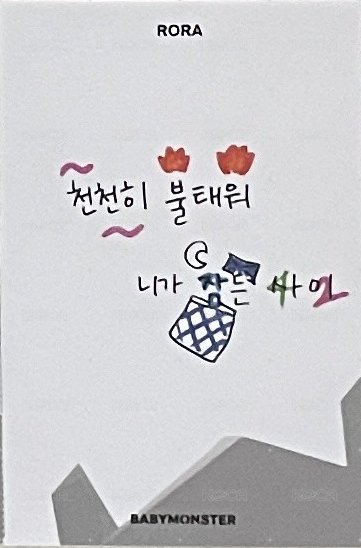 RORA
천천히 불태워
니가 잠든 사이
BABYMONSTER